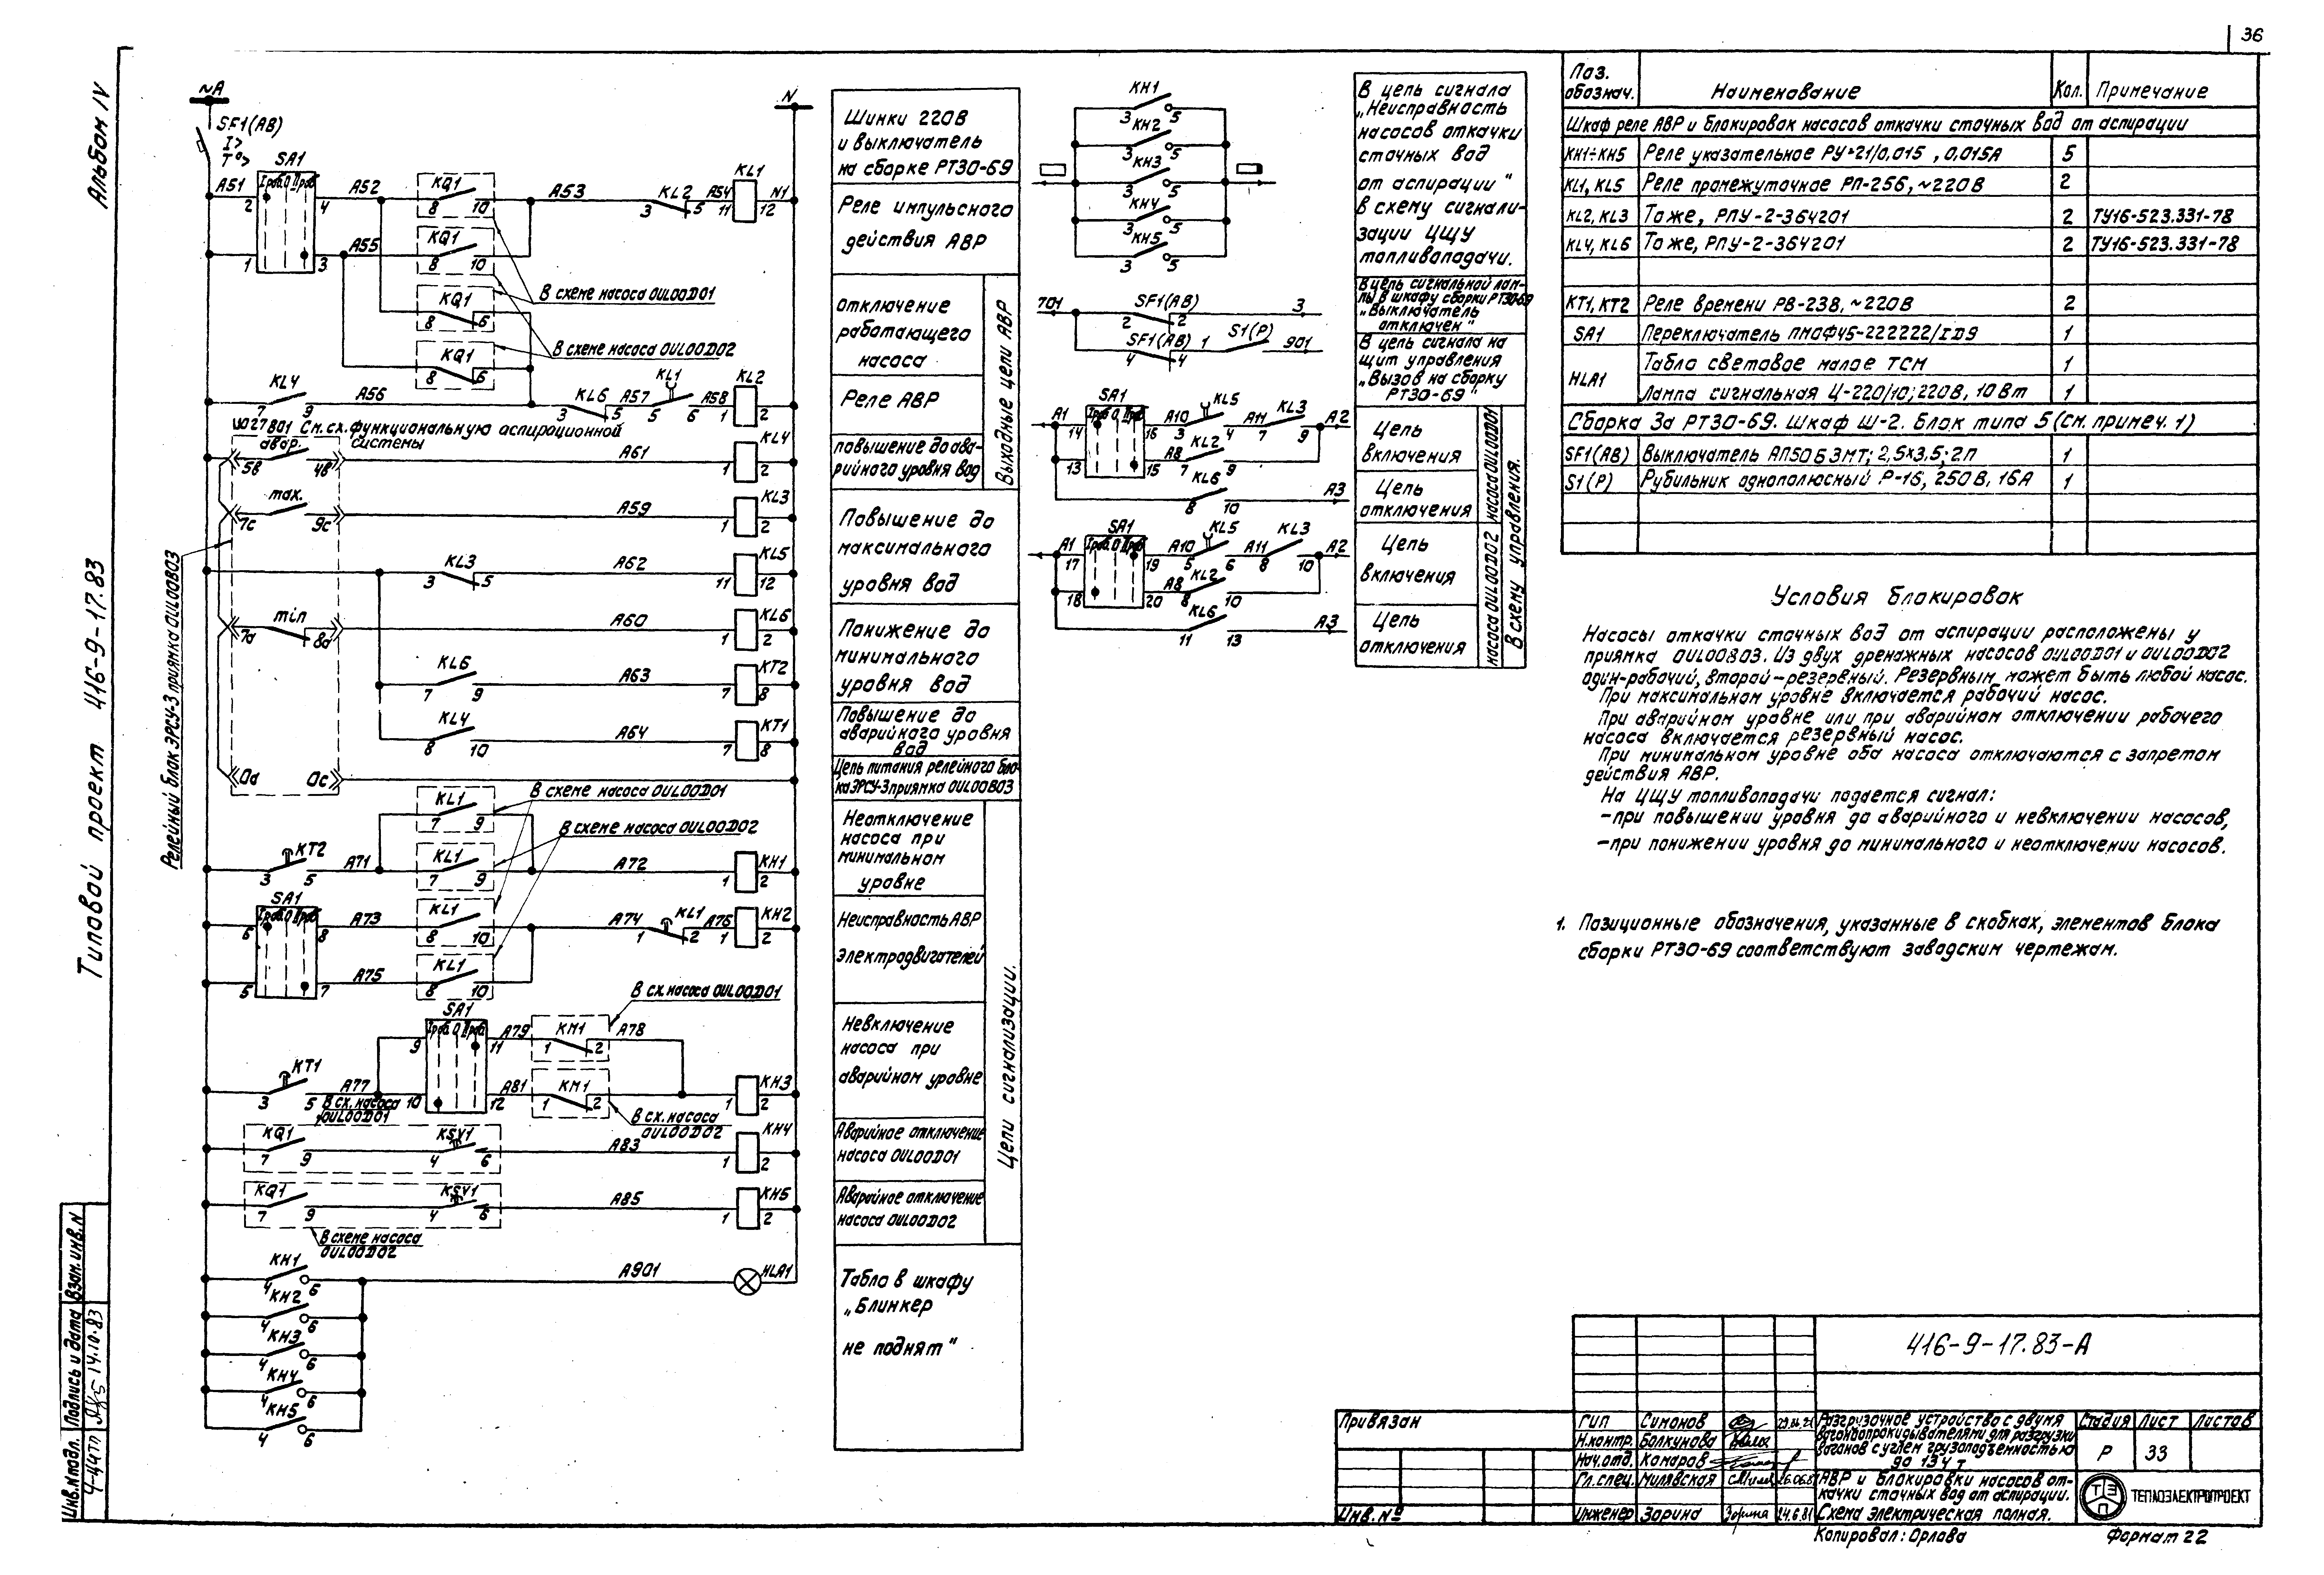 36
Альбом IV
Типовой проект 416-9-17.83
Инв.№подл.
Подпись и дата
Взам.инв.N
14.10.83
~А
N
SF1(АВ)
I>
T°>
SA1
Iраб.0 IIраб
А51
2
4
А52
KQ1
8
10
А53
KL2
3
5
А54
KL1
11
12
N1
1
3
А55
KQ1
8
10
В схеме насоса 0UL00D01
KQ1
8
6
В схеме насоса 0UL00D02
KQ1
8
6
KL4
7
9
А56
KL6
3
5
А57
KL1
5
6
А58
KL2
1
2
См.сх.функциональную аспирационной
системы
авар.
5в
4в
А61
KL4
1
2
max.
7с
9с
А59
KL3
1
2
Релейный блок ЭРСУ-3 приямка 0UL00B03
KL3
3
5
А62
KL5
11
12
min
7а
8а
А60
KL6
1
2
KL6
7
9
А63
KT2
7
8
KL4
8
10
А64
KT1
7
8
0а
0с
В схеме насоса 0UL00D01
KL1
7
9
В схеме насоса 0UL00D02
KT2
3
5
А71
KL1
7
9
А72
KH1
1
2
SA1
Iраб.0 IIраб
6
8
А73
KL1
8
10
А74
KL1
1
2
А76
KH2
1
2
5
7
А75
KL1
8
10
В сх.насоса 0UL00D01
SA1
Iраб.0 IIраб.
9
11
А79
KM1
1
2
А78
KT1
3
5
А77
10
12
А81
KM1
1
2
KH3
1
2
В сх.насоса
0UL00D01
В сх.насоса
0UL00D02
KQ1
7
9
KSV1
4
6
А83
KH4
1
2
KQ1
7
9
KSV1
4
6
А85
KH5
1
2
В схеме насоса
0UL00D02
KH1
4
6
А901
HLA1
KH2
4
6
KH3
4
6
KH4
4
6
KH5
4
6
Шинки 220В
и выключатель
на сборке РТ30-69
Реле импульсного
действия АВР
отключение
работающего
насоса
Реле АВР
повышение до ава-
рийного уровня вод
Выходные цепи АВР
Повышение до
максимального
уровня вод
Понижение до
минимального
уровня вод
Повышение до
аварийного уровня
вод
Цепь питания релейного бло-
ка ЭРСУ-3 приямка 0UL00B03
Неотключение
насоса при
минимальном
уровне
Неисправность АВР
электродвигателей
Невключение
насоса при
аварийном уровне
Аварийное отключение
насоса 0UL00D01
Аварийное отключение
насоса 0UL00D02
Цепи сигнализации.
Табло в шкафу
„Блинкер
не поднят"
KH1
3
5
KH2
3
5
KH3
3
5
KH4
3
5
KH5
3
5
701
SF1(АВ)
2
2
3
SF1(АВ)
4
4
1
S1(Р)
901
А1
SA1
Iраб.0 IIраб
14
16
А10
KL5
3
4
А11
KL3
7
9
А2
13
15
А8
KL2
7
9
KL6
8
10
А3
А1
SA1
Iраб.0 IIраб
17
19
А10
KL5
5
6
А11
KL3
8
10
А2
18
20
А8
KL2
8
10
KL6
11
13
А3
В цепь сигнала
„Неисправность
насосов откачки
сточных вод
от аспирации"
в схему сигнали-
зации ЦЩУ
топливоподачи.
В цепь сигнальной лам-
пы в шкафу сборки РТ30-69
„Выключатель
отключен"
В цепь сигнала на
щит управления
„Вызов на сборку
РТ30-69"
Цепь
включения
Цепь
отключения
насоса 0UL00D01
Цепь
включения
Цепь
отключения
насоса 0UL00D02
В схему управления.
Поз.
обознач.
Наименование
Кол.
Примечание
Шкаф реле АВР и блокировок насосов откачки сточных вод от аспирации
KH1÷KH5 Реле указательное РУ-21/0,015 , 0,015А 5
KL1, KL5 Реле промежуточное РП-256, ~220В 2
KL2, KL3 Тоже, РПУ-2-364201 2 ТУ16-523.331-78
KL4, KL6 Тоже, РПУ-2-364201 2 ТУ16-523.331-78
KT1, KT2 Реле времени РВ-238, ~220В 2
SA1 Переключатель ПМОФ45-222222/IД9 1
HLA1 Табло световое малое ТСМ 1
Лампа сигнальная Ц-220/10; 220В, 10Вт 1
Сборка 3а РТ30-69. Шкаф Ш-2. Блок типа 5 (см. примеч. 1)
SF1(АВ) Выключатель АП50Б3МТ; 2,5х3,5; 2П 1
S1(Р) Рубильник однополюсный Р-16, 250В, 16А 1
Условия блокировок
Насосы откачки сточных вод от аспирации расположены у
приямка 0UL00B03. Из двух дренажных насосов 0UL00D01 и 0UL00D02
один-рабочий, второй-резервный. Резервным может быть любой насос.
При максимальном уровне включается рабочий насос.
При аварийном уровне или при аварийном отключении рабочего
насоса включается резервный насос.
При минимальном уровне оба насоса отключаются с запретом
действия АВР.
На ЦЩУ топливоподачи подается сигнал:
-при повышении уровня до аварийного и невключении насосов,
-при понижении уровня до минимального и неотключении насосов.
1. Позиционные обозначения, указанные в скобках, элементов блока
сборки РТ30-69 соответствуют заводским чертежам.
Привязан
Инв.№
416-9-17.83-А
ГИП Симонов
Н.контр. Болкунова
Нач.отд. Комаров
Гл.спец. Милявская
Инженер Зорина 24.6.81
Разгрузочное устройство с двумя
вагоноопрокидывателями для разгрузки
вагонов с углем грузоподъемностью
до 134 т
Стадия Лист Листов
Р 33
АВР и блокировки насосов от-
качки сточных вод от аспирации.
Схема электрическая полная.
ТЭП
ТЕПЛОЭЛЕКТРОПРОЕКТ
Копировал: Орлова
Формат 22